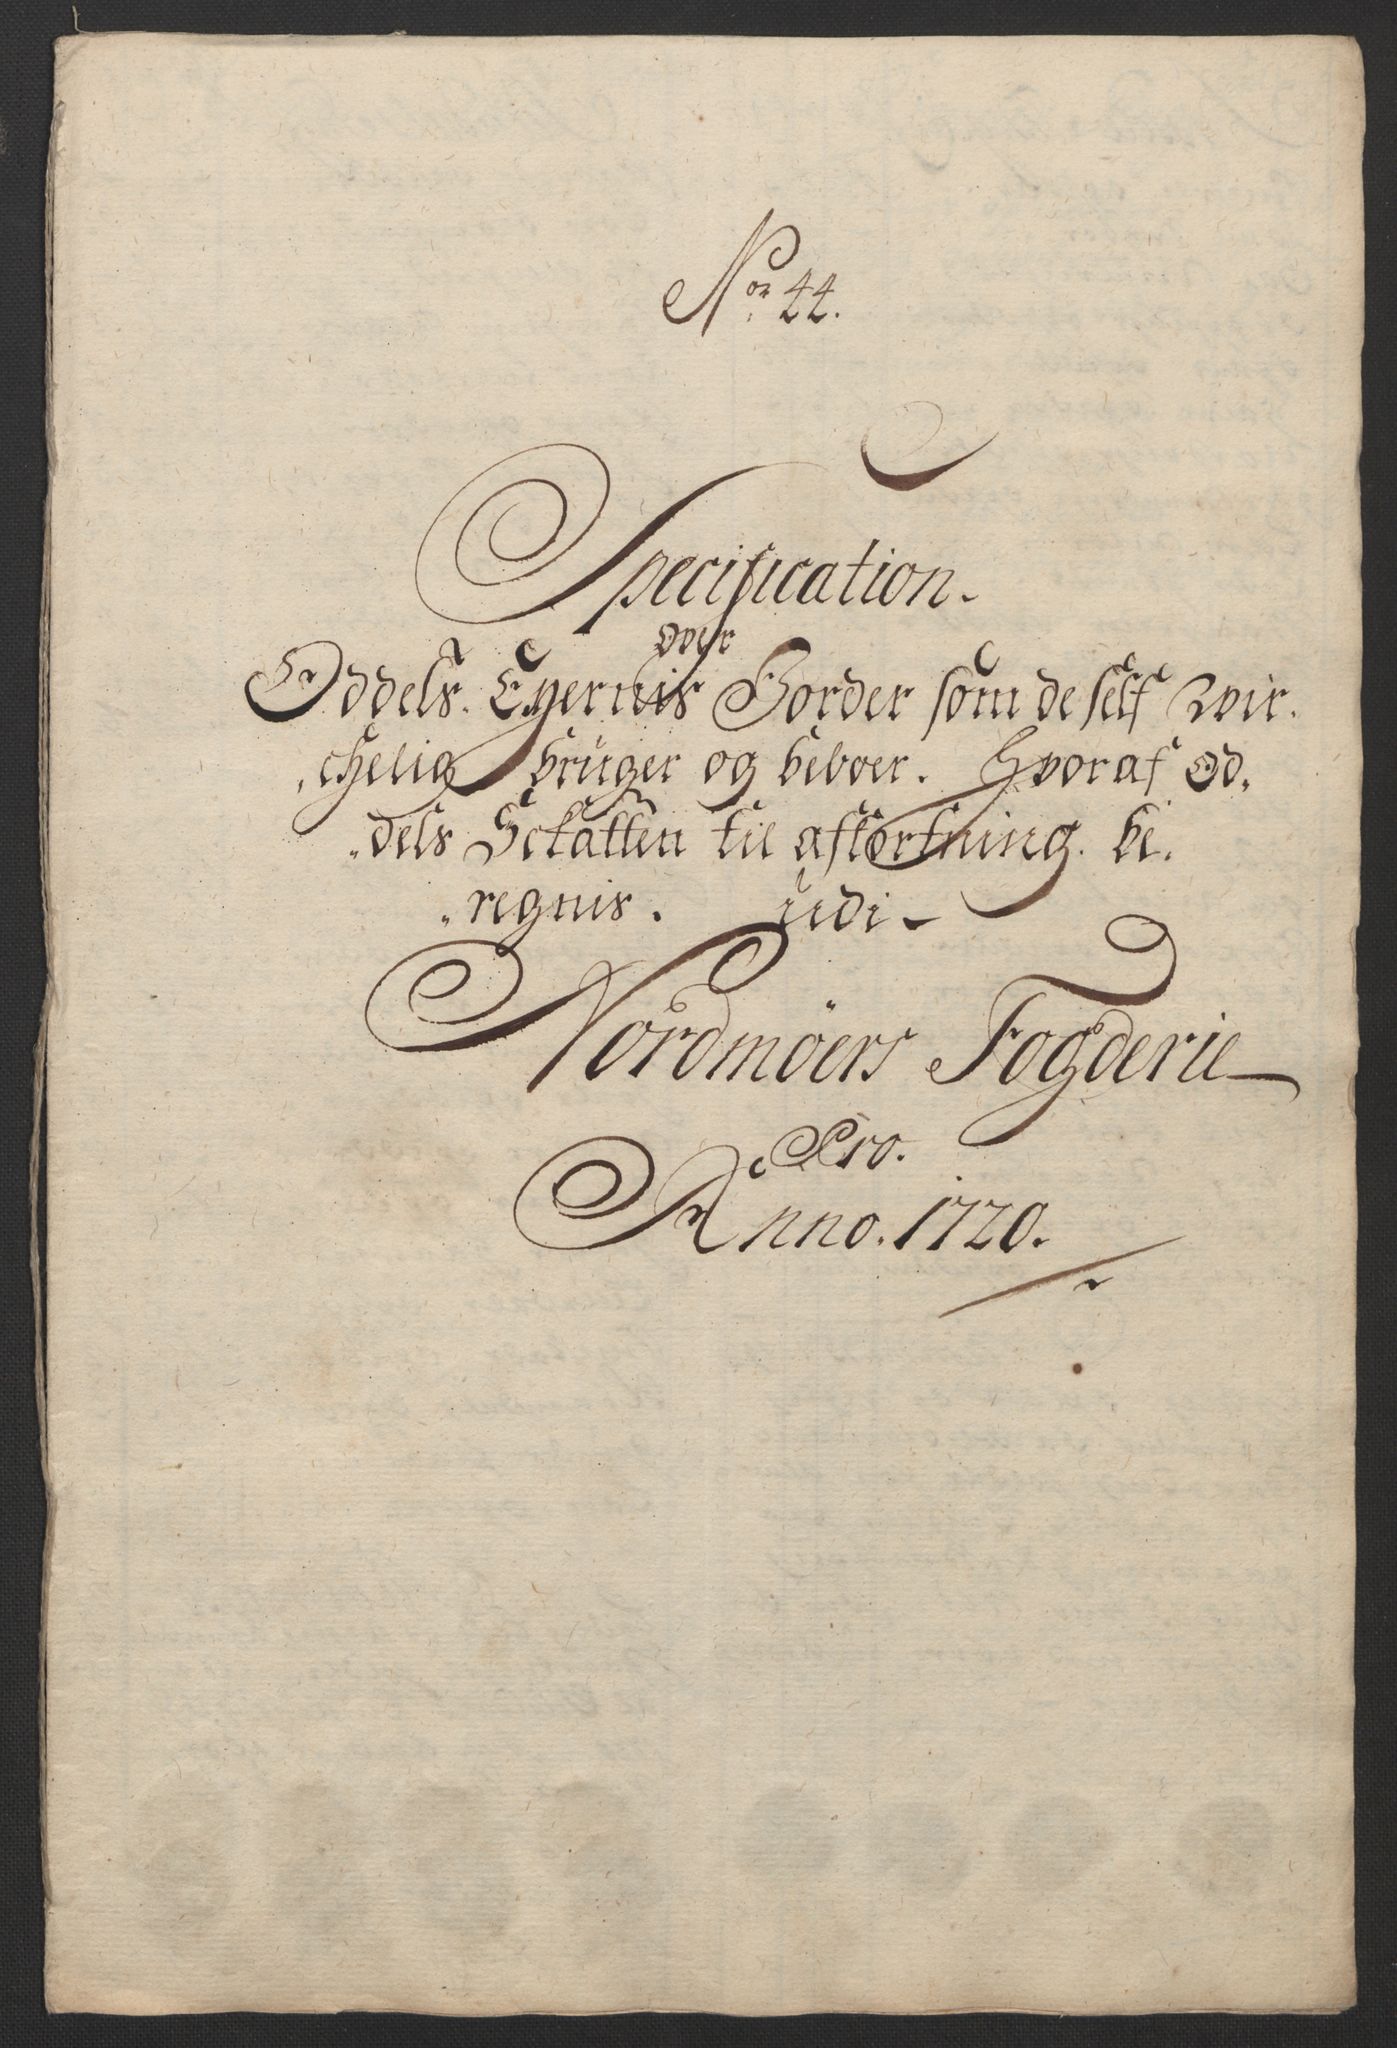 No: 44.
Specification.
over
Oddels. Eyernis Gorder som de self Wir,
,chelig bruger og beboer. Hvoraf Od,
„dels Schatten til aftortning. be,
„regnis. udi
Nordmöers Fogderie
Pro.
Anno. 1720.